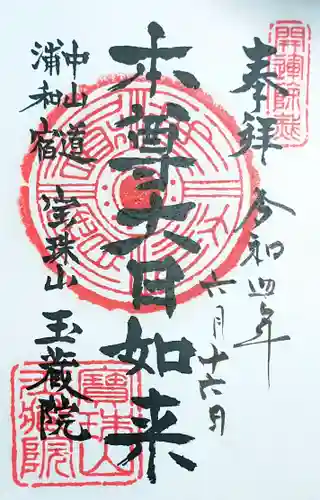 開運師蔵
奉拝
令和四年
六月十六日
本尊大日如来
中山道
浦和宿
宝珠山
玉蔵院
寶珠山
玉蔵院